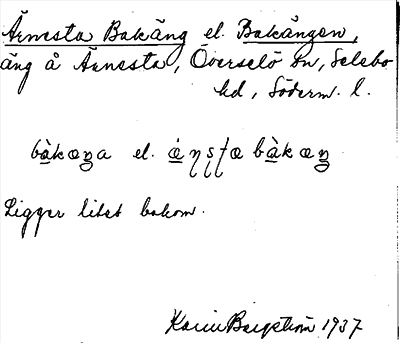 Ärnesta Bakäng el. Bakängen,
äng å Ärnesta, Överselö sn, Selebo
hd, Söderm. l.
bàkæŋa el. æ̀ṇṣṭæ bàkæŋ
Ligger litet bakom.
Karin Bergström 1937